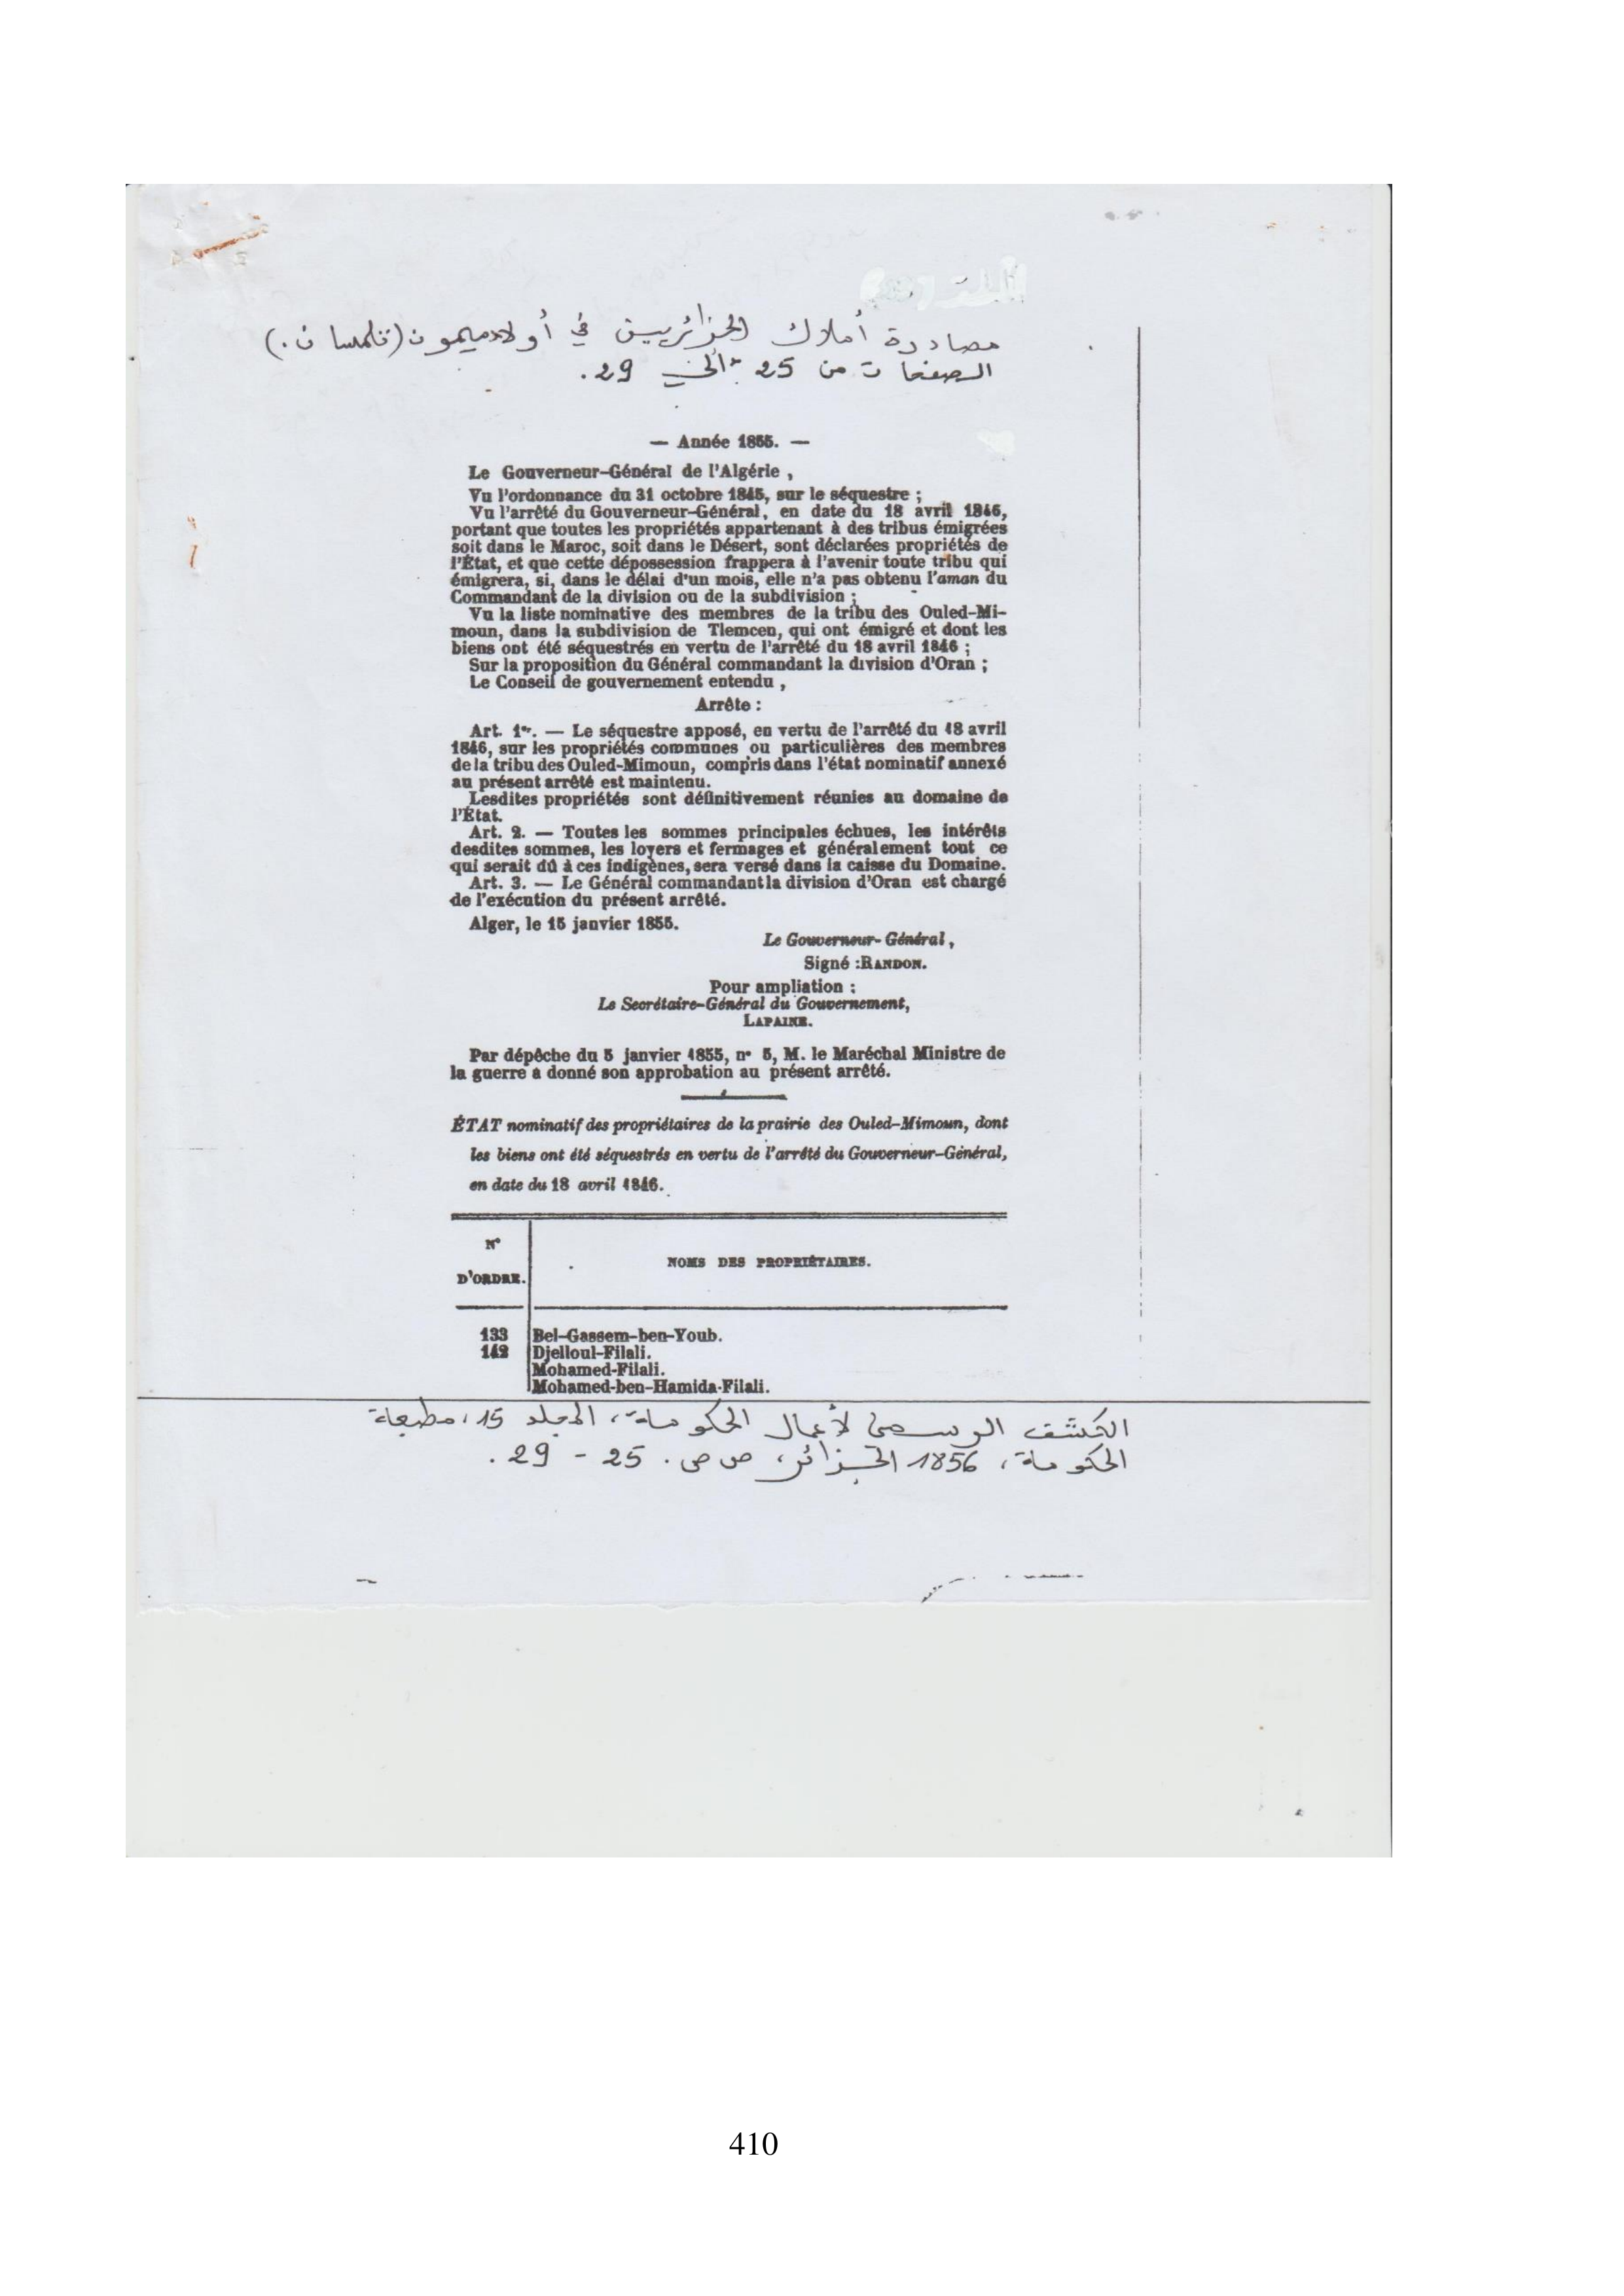 مصادرة أملاك الجزائريين في أولاد ميمون (تلمسان.)
الصفحات من 25 إلى 29.
— Année 1855. —
Le Gouverneur-Général de l'Algérie ,
Vu l'ordonnance du 31 octobre 1845, sur le séquestre ;
Vu l'arrêté du Gouverneur-Général, en date du 18 avril 1846,
portant que toutes les propriétés appartenant à des tribus émigrées
soit dans le Maroc, soit dans le Désert, sont déclarées propriétés de
l'État, et que cette dépossession frappera à l'avenir toute tribu qui
émigrera, si, dans le délai d'un mois, elle n'a pas obtenu l'aman du
Commandant de la division ou de la subdivision ;
Vu la liste nominative des membres de la tribu des Ouled-Mi-
moun, dans la subdivision de Tlemcen, qui ont émigré et dont les
biens ont été séquestrés en vertu de l'arrêté du 18 avril 1846 ;
Sur la proposition du Général commandant la division d'Oran ;
Le Conseil de gouvernement entendu ,
Arrête :
Art. 1er. — Le séquestre apposé, en vertu de l'arrêté du 18 avril
1846, sur les propriétés communes ou particulières des membres
de la tribu des Ouled-Mimoun, compris dans l'état nominatif annexé
au présent arrêté est maintenu.
Lesdites propriétés sont définitivement réunies au domaine de
l'État.
Art. 2. — Toutes les sommes principales échues, les intérêts
desdites sommes, les loyers et fermages et généralement tout ce
qui serait dû à ces indigènes, sera versé dans la caisse du Domaine.
Art. 3. — Le Général commandant la division d'Oran est chargé
de l'exécution du présent arrêté.
Alger, le 15 janvier 1855.
Le Gouverneur-Général ,
Signé : RANDON.
Pour ampliation :
Le Secrétaire-Général du Gouvernement,
LAPAINE.
Par dépêche du 5 janvier 1855, n° 5, M. le Maréchal Ministre de
la guerre a donné son approbation au présent arrêté.
ÉTAT nominatif des propriétaires de la prairie des Ouled-Mimoun, dont
les biens ont été séquestrés en vertu de l'arrêté du Gouverneur-Général,
en date du 18 avril 1846.
N° D'ORDRE. NOMS DES PROPRIÉTAIRES.
133 Bel-Gassem-ben-Youb.
142 Djelloul-Filali.
Mohamed-Filali.
Mohamed-ben-Hamida-Filali.
الكشف الرسمي لأعمال الحكومة، المجلد 15، مطبعة
الحكومة، 1856 الجزائر، ص ص. 25 - 29.
410